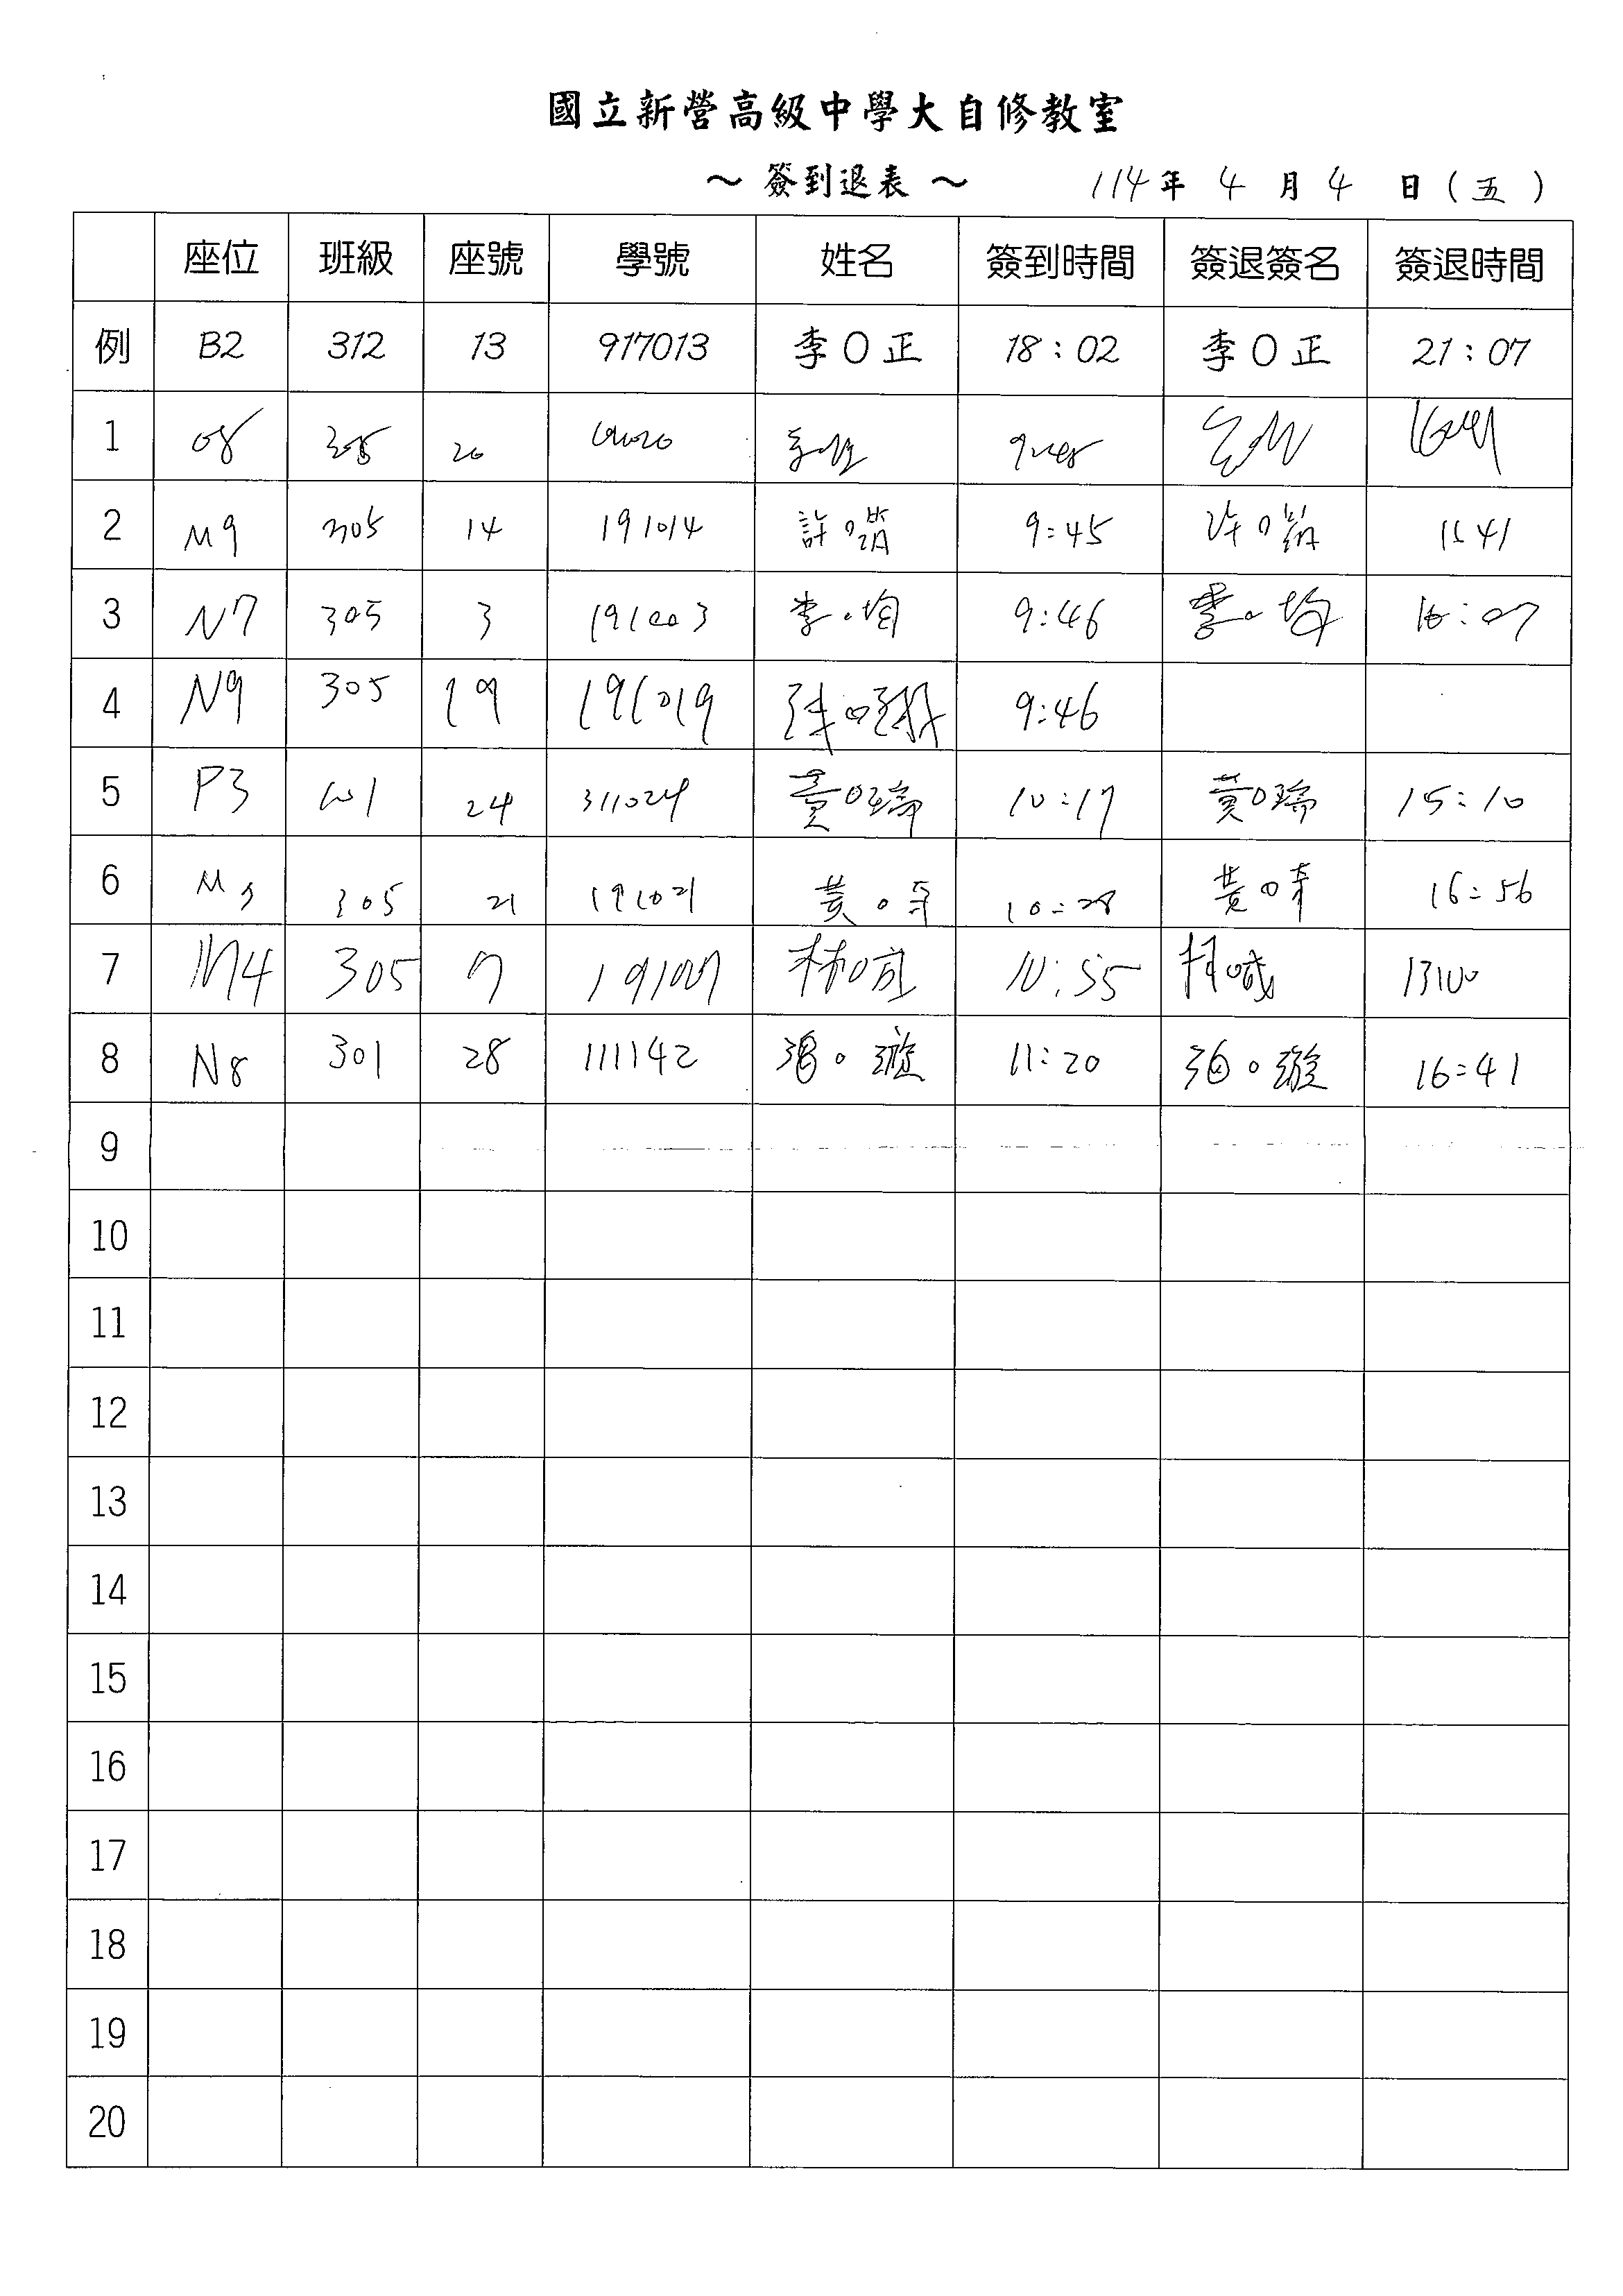 國立新營高級中學大自修教室
～ 簽到退表 ～ 114年 4 月 4 日(五)
座位 班級 座號 學號 姓名 簽到時間 簽退簽名 簽退時間
例 B2 312 13 917013 李O正 18:02 李O正 21:07
1 08 305 20
2 M9 305 14 191014 許 9:45 41
3 N7 305 3 191003 李○均 9:46 李○均 16:07
4 N9 305 19 191019 9:46
5 P3 24 311024 黃O瑞 10:17 黃O瑞 15:10
6 M 305 21 191021 黃 10:28 黃 16:56
7 M4 305 7 191007 林 10:55 林
8 N8 301 28 111142 ○漩 11:20 ○漩 16:41
9
10
11
12
13
14
15
16
17
18
19
20